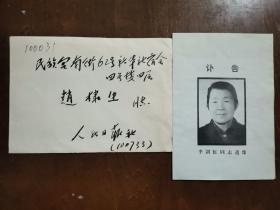 100031
民族宫南街62号新华社宿舍
四号楼四层
赵棣生 收
人民日报社
(100733)
讣告
李调恒同志遗像